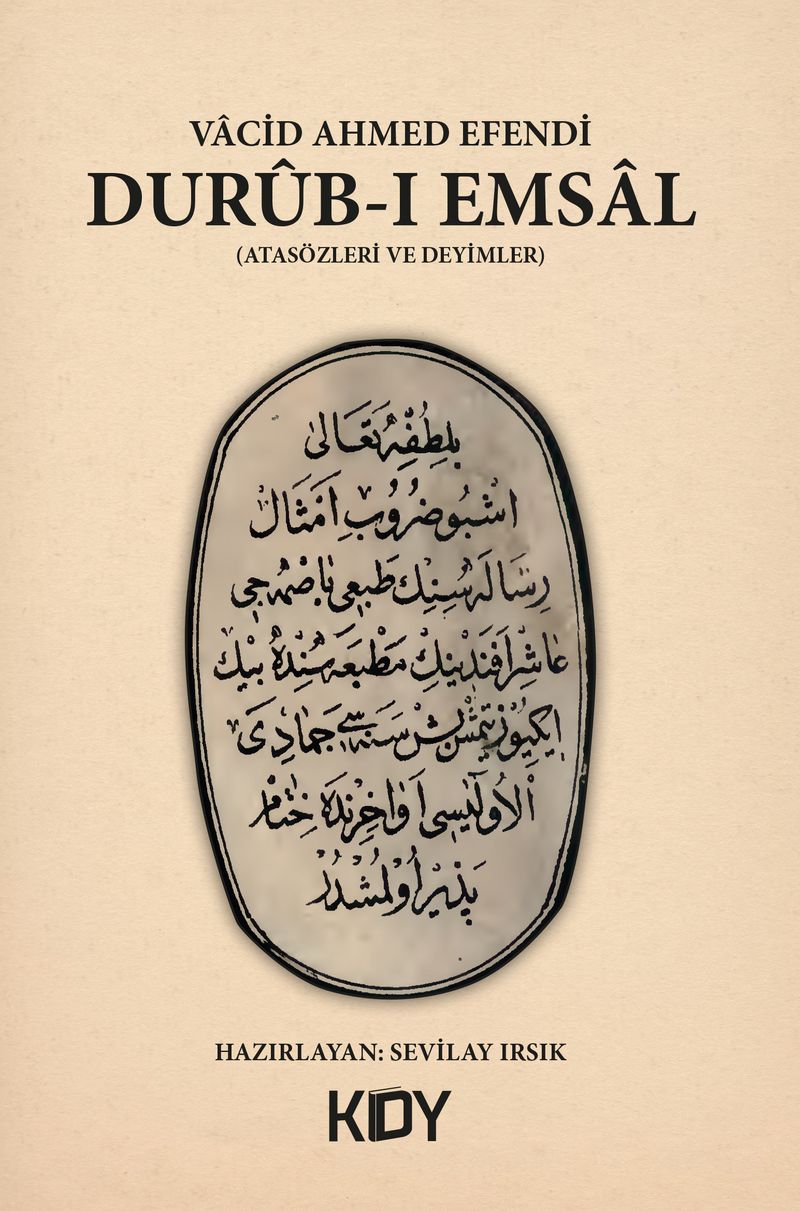 VÂCİD AHMED EFENDİ
DURÛB-I EMSÂL
(ATASÖZLERİ VE DEYİMLER)
بِلُطْفِهِ تَعَالٰى
اشبو ضُرُوبِ اَمْثَالْ
رِسَالَه سُنِڭ طبعى باصمه جى
عَاشِر اَفَنْدِينِڭ مَطْبَعَه سِنْدَه بيڭ
ايكيوز يتمش بش سَنَه سى جمَاذِىَ
اْلاُولٰيسى اَوَاخِرِنْدَه خِتَام
پَذِيْر اُولْمُشْدُرْ
HAZIRLAYAN: SEVİLAY IRSIK
KDY